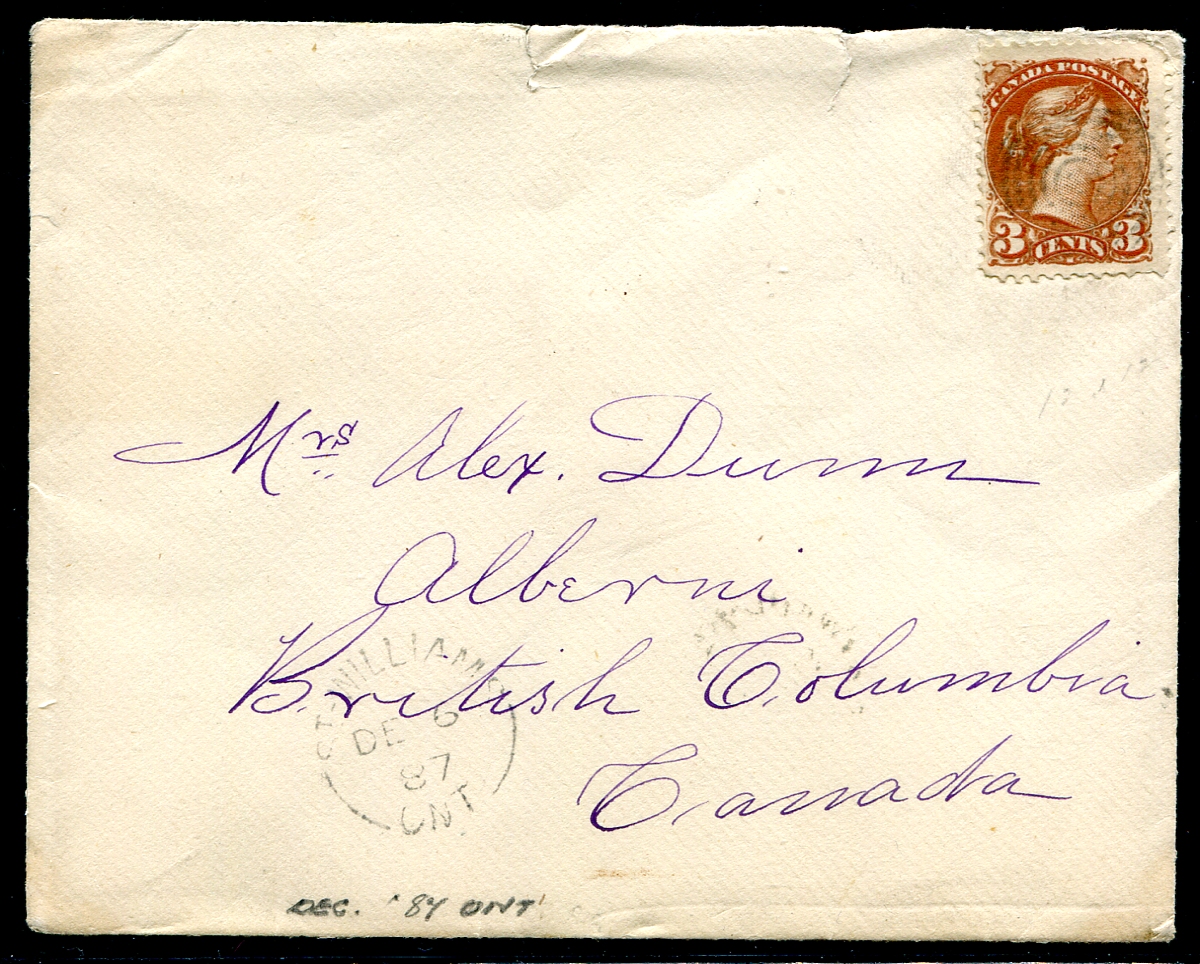 CANADA POSTAGE
3 CENTS 3
Mrs Alex. Dunn
Alberni
British Columbia
Canada
ST. WILLIAMS
DE 6
87
ONT
DEC. '87 ONT